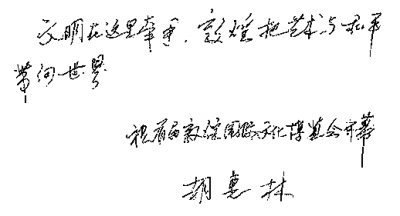 文明在这里牵手,敦煌把艺术与和平
带向世界
祝首届敦煌国际文化博览会开幕
胡惠林